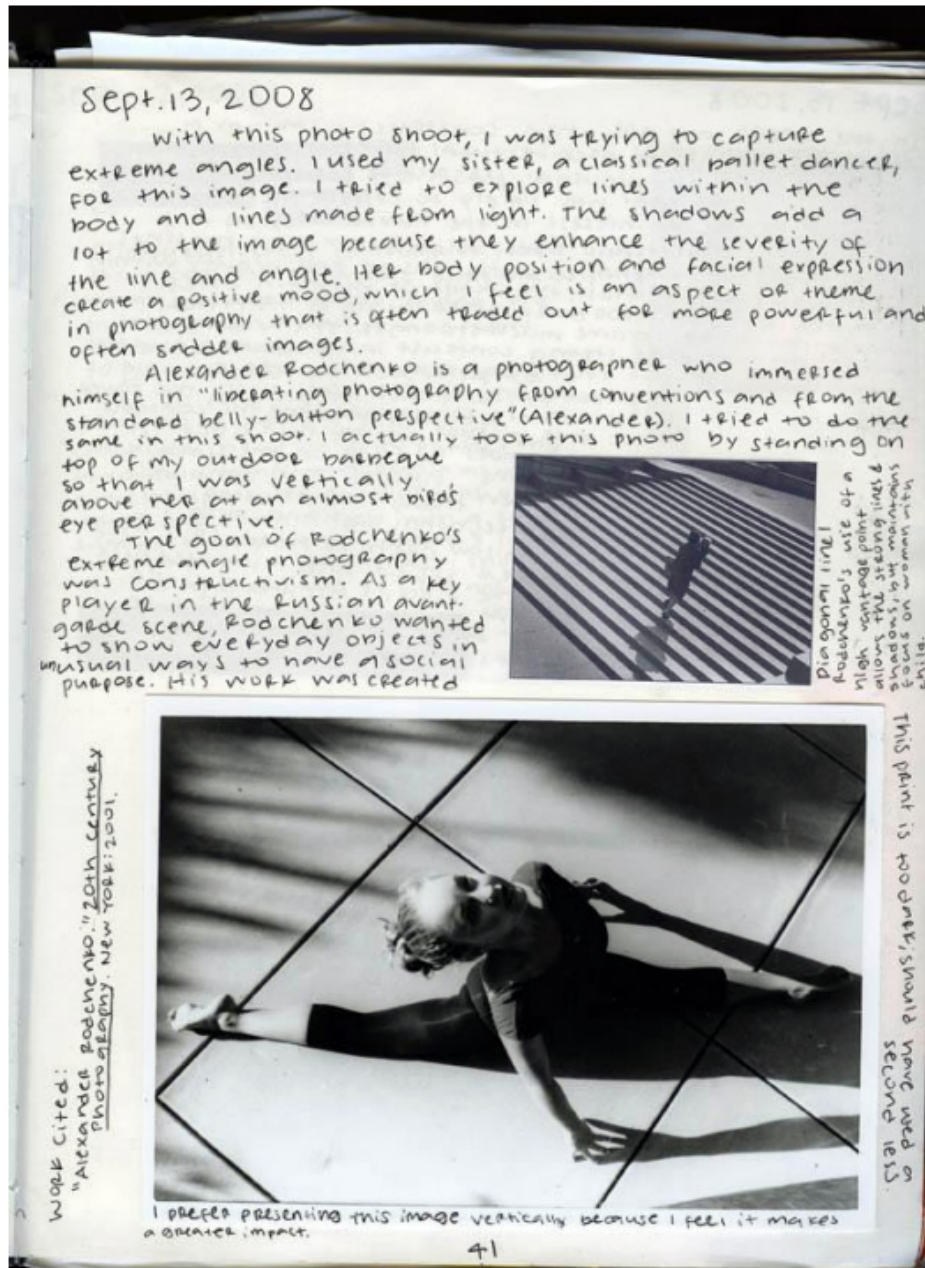 Sept. 13, 2008
With this photo shoot, I was trying to capture
extreme angles. I used my sister, a classical ballet dancer,
for this image. I tried to explore lines within the
body and lines made from light. The shadows add a
lot to the image because they enhance the severity of
the line and angle. Her body position and facial expression
create a positive mood, which I feel is an aspect or theme
in photography that is often traded out for more powerful and
often sadder images.
Alexander Rodchenko is a photographer who immersed
himself in "liberating photography from conventions and from the
standard belly-button perspective" (Alexander). I tried to do the
same in this shoot. I actually took this photo by standing on
top of my outdoor barbeque
so that I was vertically
above her at an almost bird's
eye perspective.
The goal of Rodchenko's
extreme angle photography
was constructivism. As a key
player in the Russian avant-
garde scene, Rodchenko wanted
to show everyday objects in
unusual ways to have a social
purpose. His work was created
Diagonal line!
Rodchenko's use of a
high vantage point
allows the strong lines &
shadows, yet maintains
focus on woman with
child.
This print is too dark; should have used a
second less.
Work Cited:
"Alexander Rodchenko." 20th Century
Photography. New York: 2001.
I prefer presenting this image vertically because I feel it makes
a greater impact.
41